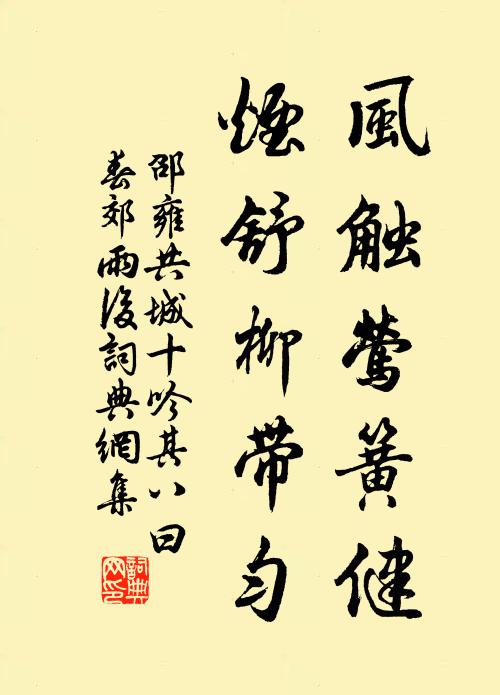 風触鶯簧健
煙舒柳帶勻
邵雍共城十吟其八曰
春郊雨後詞典網集
詞典
网印